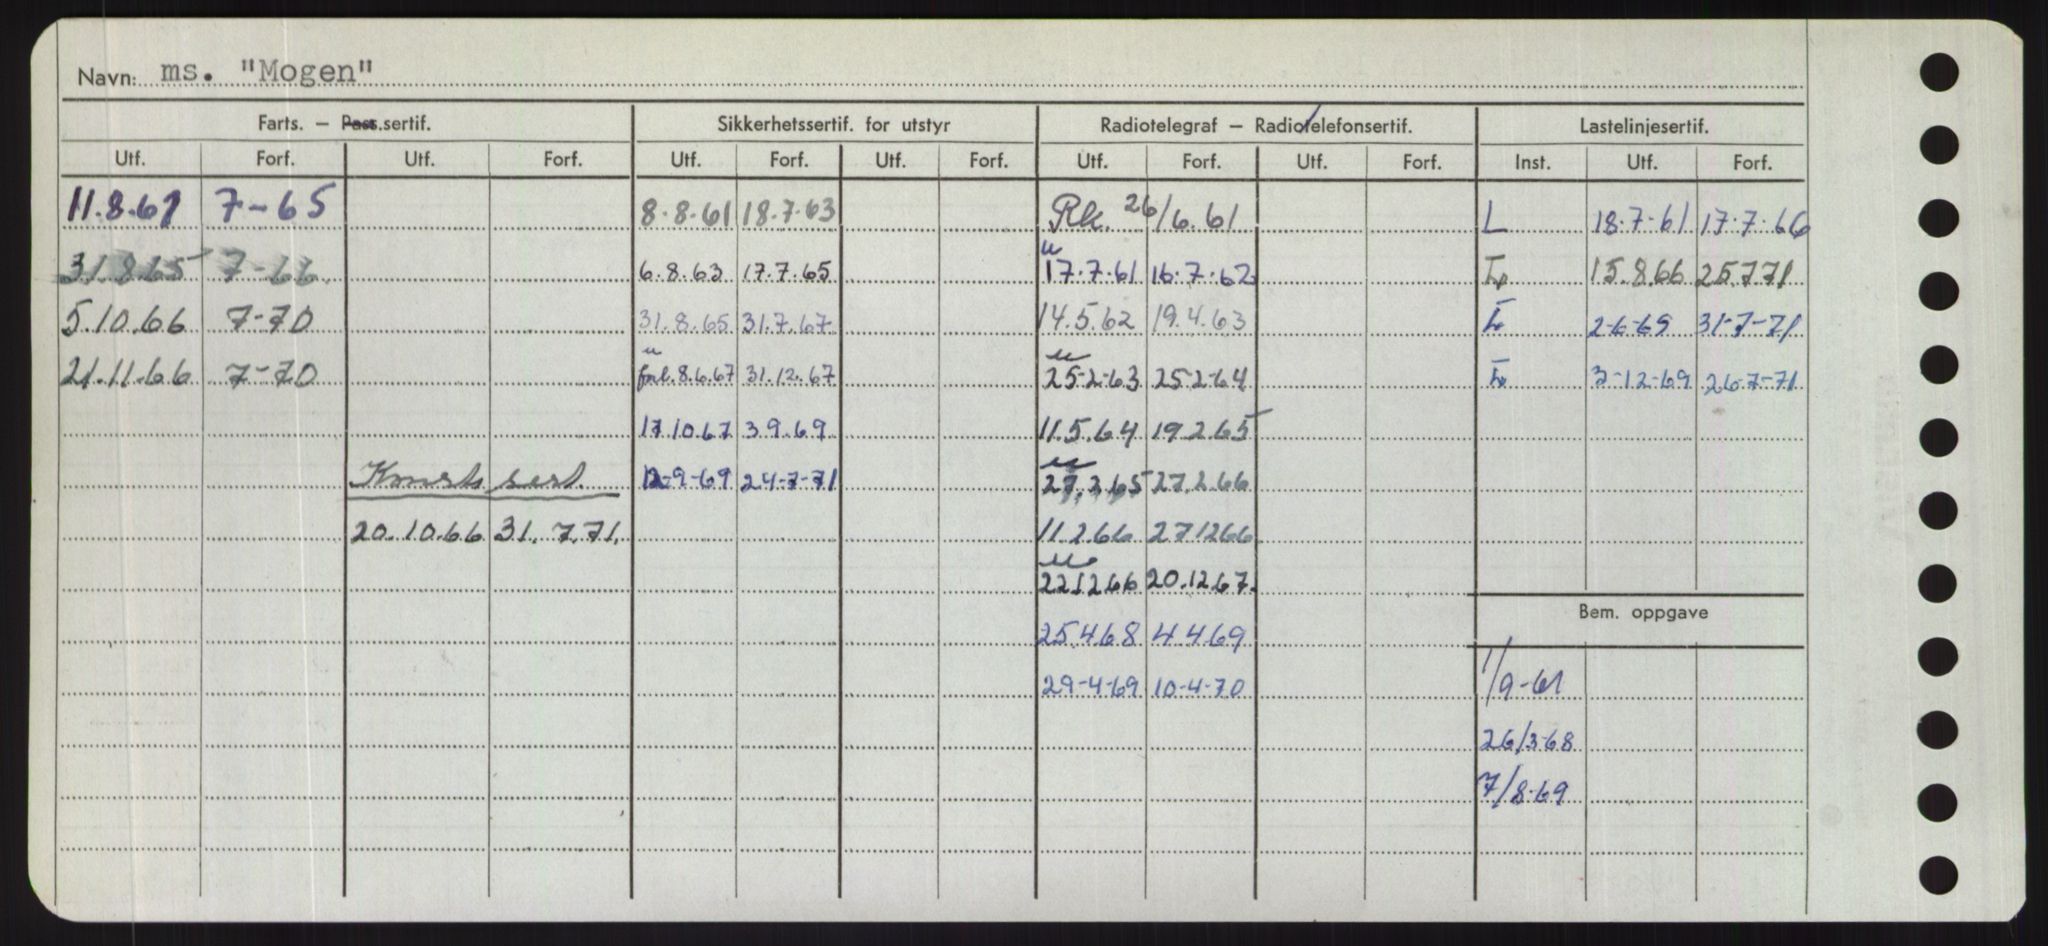 Navn: ms. "Mogen"
Farts. – Pass.sertif. Sikkerhetssertif. for utstyr Radiotelegraf – Radiotelefonsertif. Lastelinjesertif.
Utf. Forf. Utf. Forf. Utf. Forf. Utf. Forf. Utf. Forf. Utf. Forf. Inst. Utf. Forf.
11.8.61 7-65 8.8.61 18.7.63 Rk. 26/6.61 L 18.7.61 17.7.66
u
31.8.65 7-66 6.8.63 17.7.65 17.7.61 16.7.62 15.8.66 25771
5.10.66 7-70 31.8.65 31.7.67 14.5.62 19.4.63 2-6-69 31-7-71
u u
21.11.66 7-70 8.6.67 31.12.67 25-2-63 25-2-64 3-12-69 26-7-71
17.10.67 3.9.69 11.5.64 19.2.65
u
sert 12-9-69 24-7-71 27.2.65 27.2.66
20.10.66 31.7.71. 11.2.66 271266
u
221266 20.12.67.
Bem. oppgave
25468 4469
29-4-69 10-4-70 1/9-61
26/3-68
7/8-69